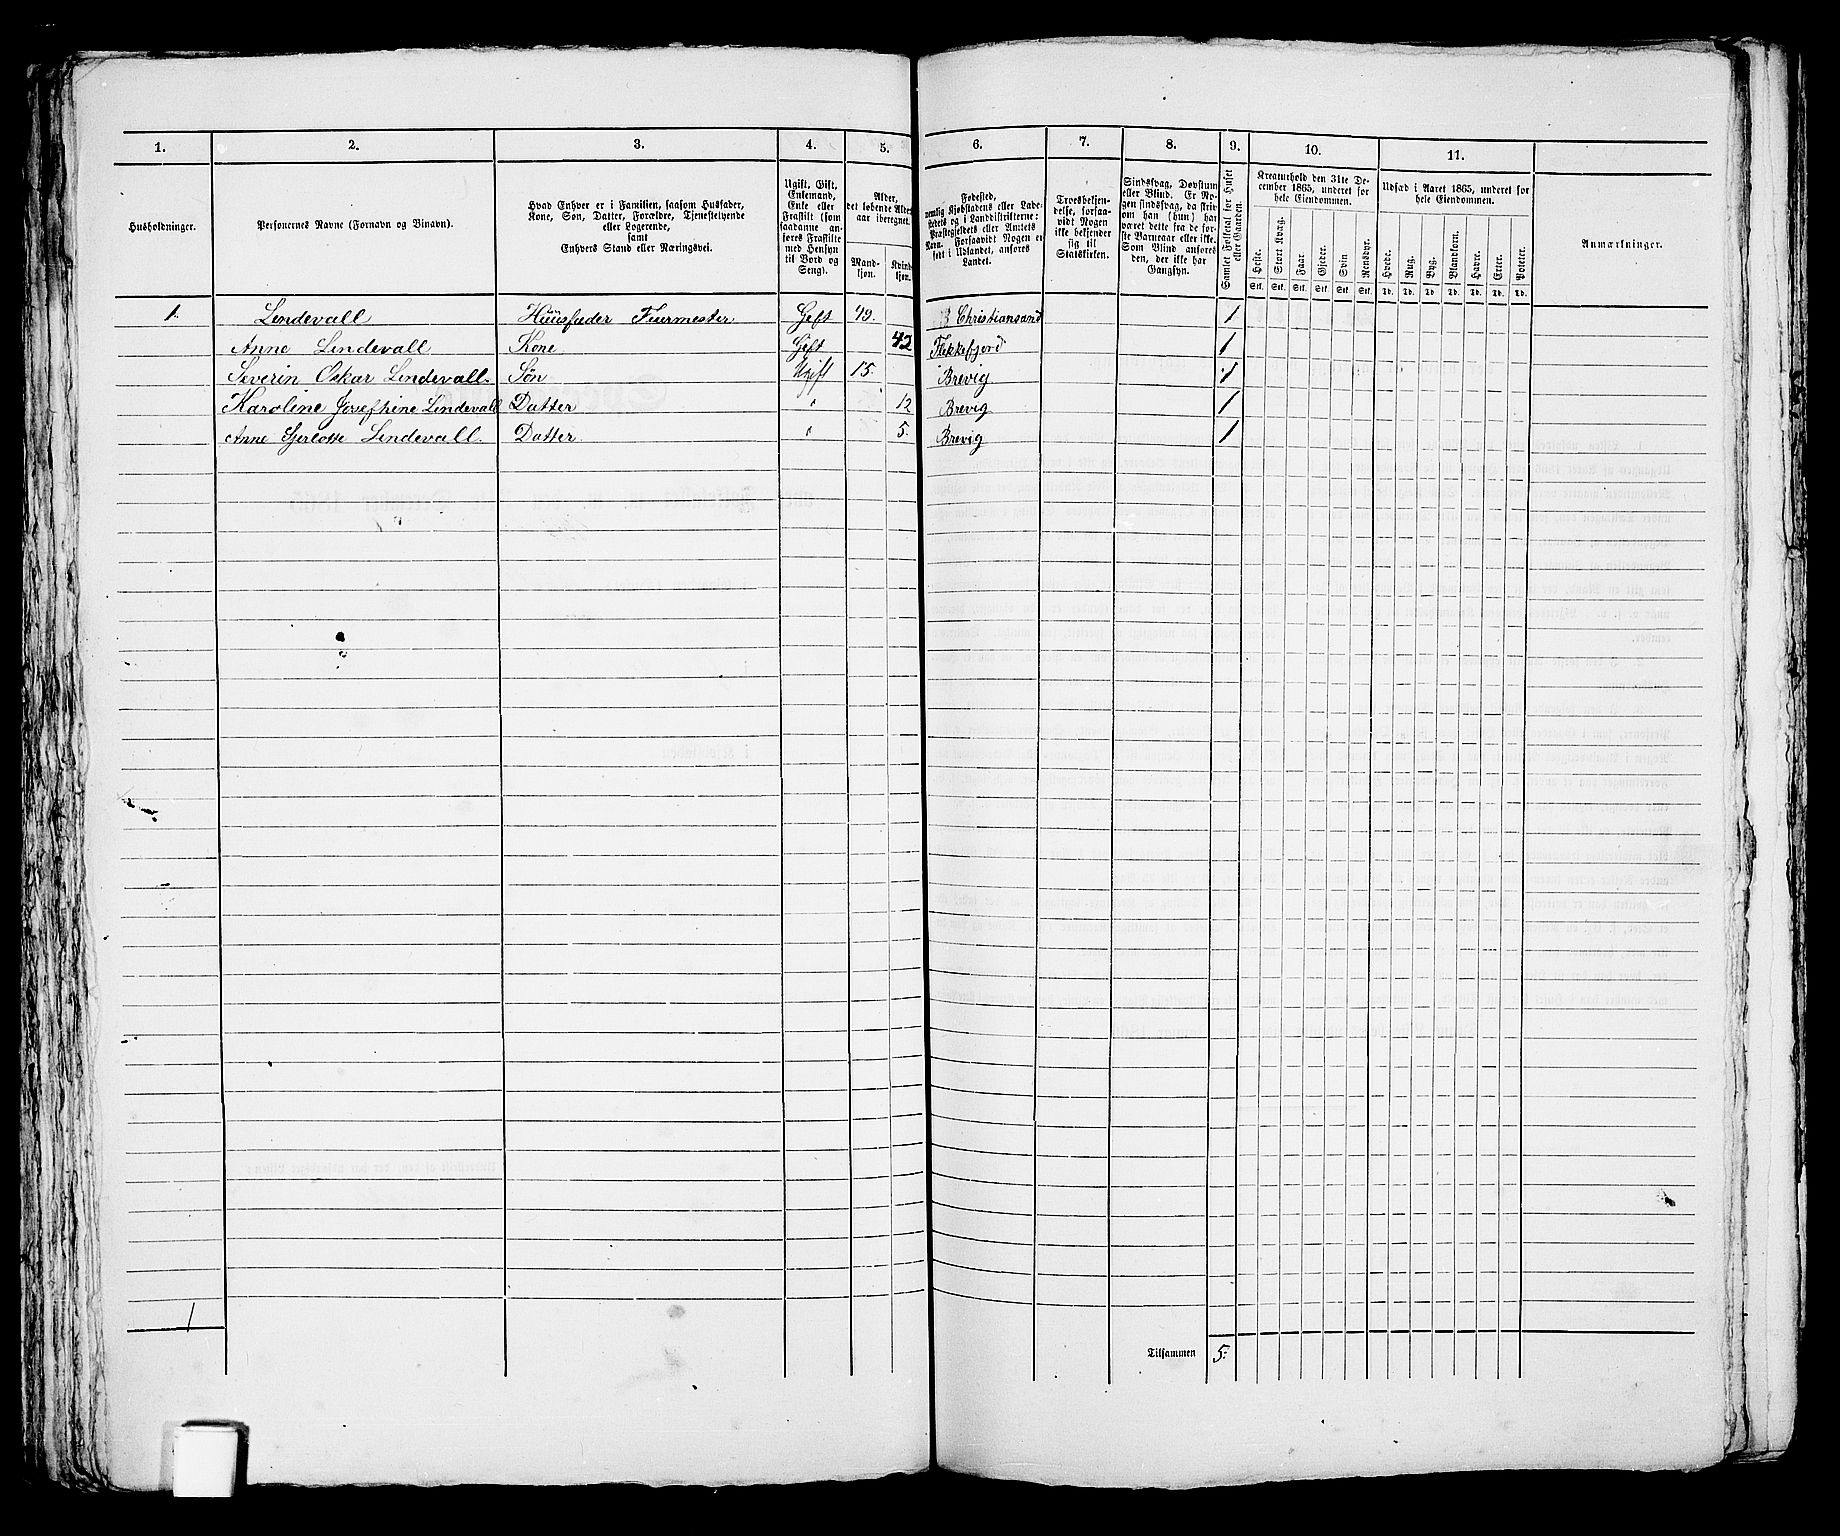 1. 2. 3. 4. 5. 6. 7. 8. 9. 10. 11.
Husholdninger.
Personernes Navne (Fornavn og Binavn).
Hvad Enhver er i Familien, saasom Husfader,
Kone, Søn, Datter, Forældre, Tjenestetyende
eller Logerende,
samt
Enhvers Stand eller Næringsvei.
Ugift, Gift,
Enkemand,
Enke eller
Fraskilt (som
saadanne an-
føres Fraskilte
med Hensyn
til Bord og
Seng).
Alder,
det løbende Alders-
aar iberegnet.
Mand-
kjøn.
Kvind-
kjøn.
Fødested,
nemlig Kjøbstadens eller Lade-
stedets og i Landdistrikterne:
Præstegjeldets eller Amtets
Navn. Forsaavidt Nogen er
født i Udlandet, anføres
Landet.
Troesbekjen-
delse, forsaa-
vidt Nogen
ikke bekjender
sig til
Statskirken.
Sindssvag, Døvstum
eller Blind. Er No-
gen sindssvag, da skriv
om han (hun) har
været dette fra de før-
ste Barneaar eller ikke.
Som Blind anføres
den, der ikke har
Gangsyn.
Samlet Folketal for Huset
eller Gaarden.
Kreaturhold den 31te De-
cember 1865, underet for
hele Eiendommen.
Heste. Stort Kvæg. Faar. Gjeder. Svin Rensdyr.
Stk. Stk. Stk. Stk. Stk. Stk.
Udsæd i Aaret 1865, underet for
hele Eiendommen.
Hvede. Rug. Byg. Blandkorn. Havre. Erter. Poteter.
Td. Td. Td. Td. Td. Td. Td.
Anmærkninger.
1. Lindevall Huusfader Fuurmester Gift 49. Christiansand 1
Anne Lindevall Kone Gift 42 Flekkefjord 1
Severin Oskar Lindevall. Søn Ugift 15. Brevig 1
Karoline Josefhine Lindevall Datter " 12 Brevig 1
Anne Sjerlotte Lindevall. Datter. " 5. Brevig 1
1
Tilsammen 5.